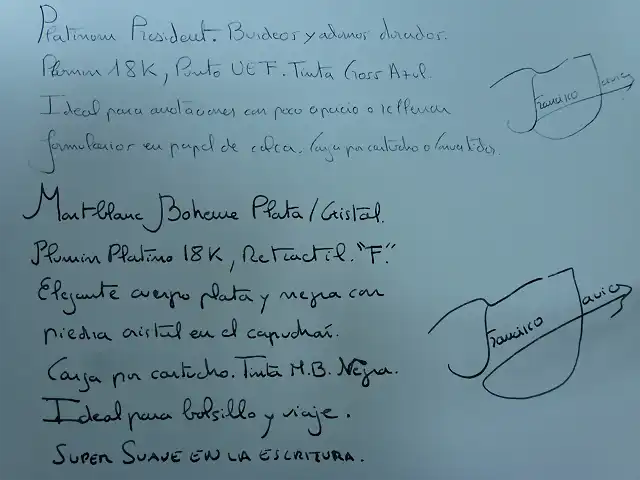 Platinum President. Burdeos y adornos dorados.
Plumin 18K, Punto UEF. Tinta Cross Azul.
Ideal para anotaciones con poco espacio o rellenar
formularios en papel de calca. Carga por cartucho o convertidor.
Francisco Javier
Montblanc Boheme Plata/Cristal.
Plumin Platino 18K, Retractil. "F".
Elegante cuerpo plata y negra con
piedra cristal en el capuchón.
Carga por cartucho. Tinta M.B. Negra.
Ideal para bolsillo y viaje.
SUPER SUAVE EN LA ESCRITURA.
Francisco Javier